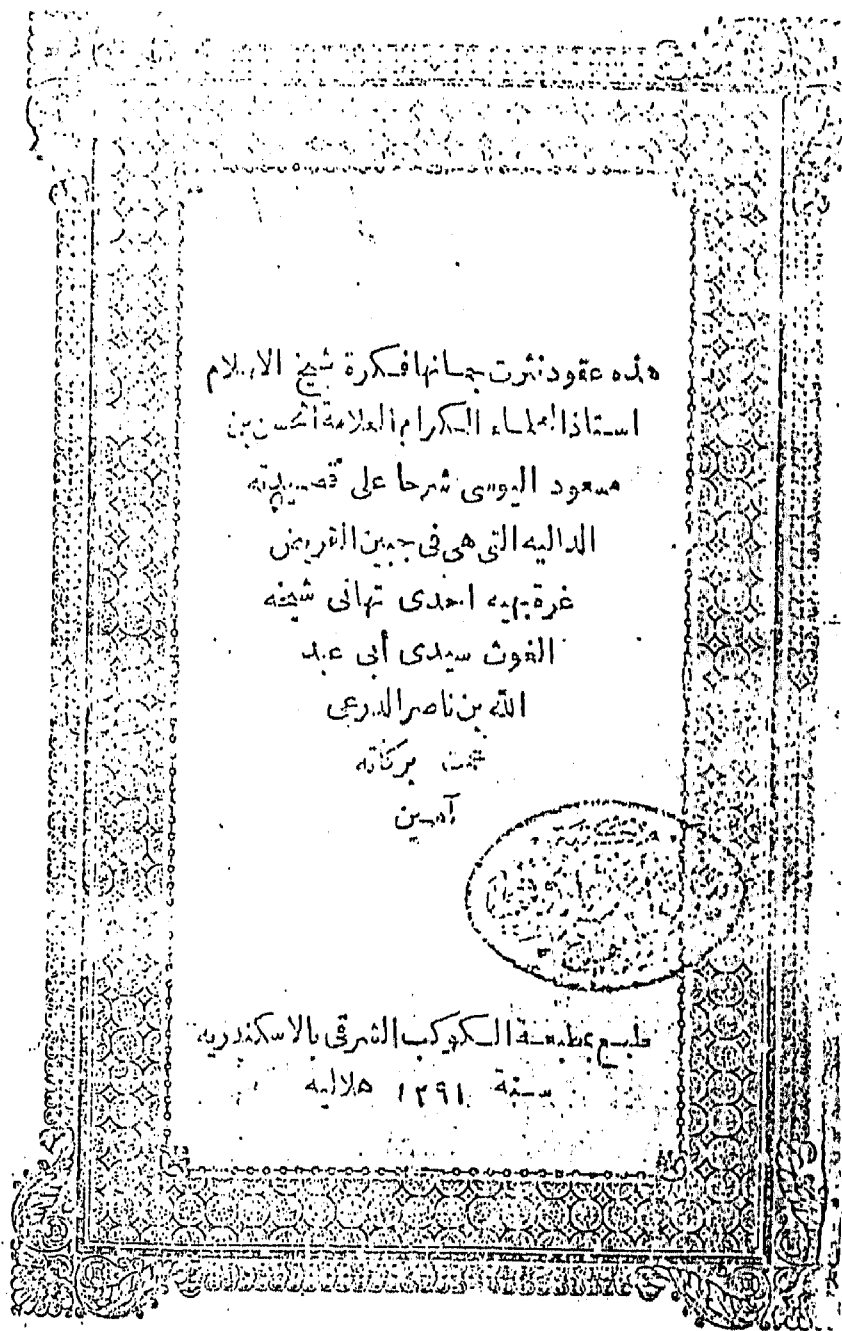 هذه عقود نثرت جمانها فكرة شيخ الاسلام
استاذ العلماء الكرام العلامة الحسن بن
مسعود اليوسى شرحا على قصيدته
الداليه التى هى فى جبين القريض
غرة بهيه احدى تهانى شيخه
الغوث سيدى أبى عبد
الله بن ناصر الدرعى
عمت بركاته
آمـين
طبع بمطبعة الكوكب الشرقى بالاسكندريه
سنة ١٢٩١ هلاليه